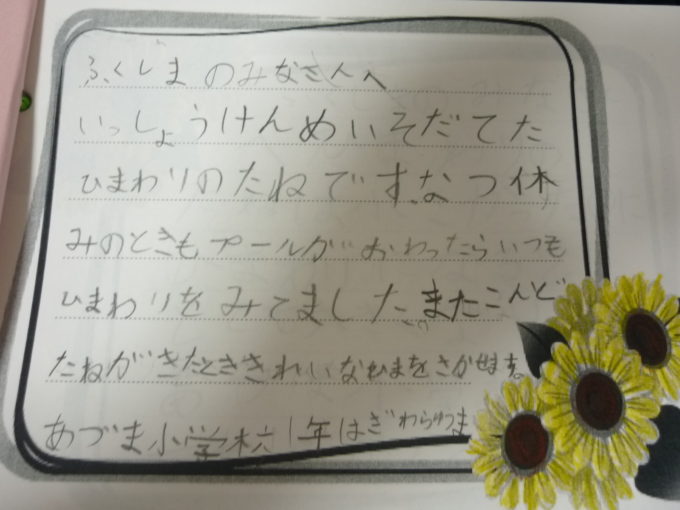 ふくしまのみなさんへ
いっしょうけんめいそだてた
ひまわりのたねです。なつ休
みのときもプールがおわったらいつも
ひまわりをみてました。またこんど
たねがきたとききれいなひまをさかせます。
あづま小学校1年はぎわらゆうま